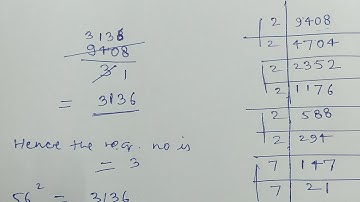 3136
9408
3 1
= 3136
Hence the req. no is
= 3
56² = 3136
2 9408
2 4704
2 2352
2 1176
2 588
2 294
7 147
7 21